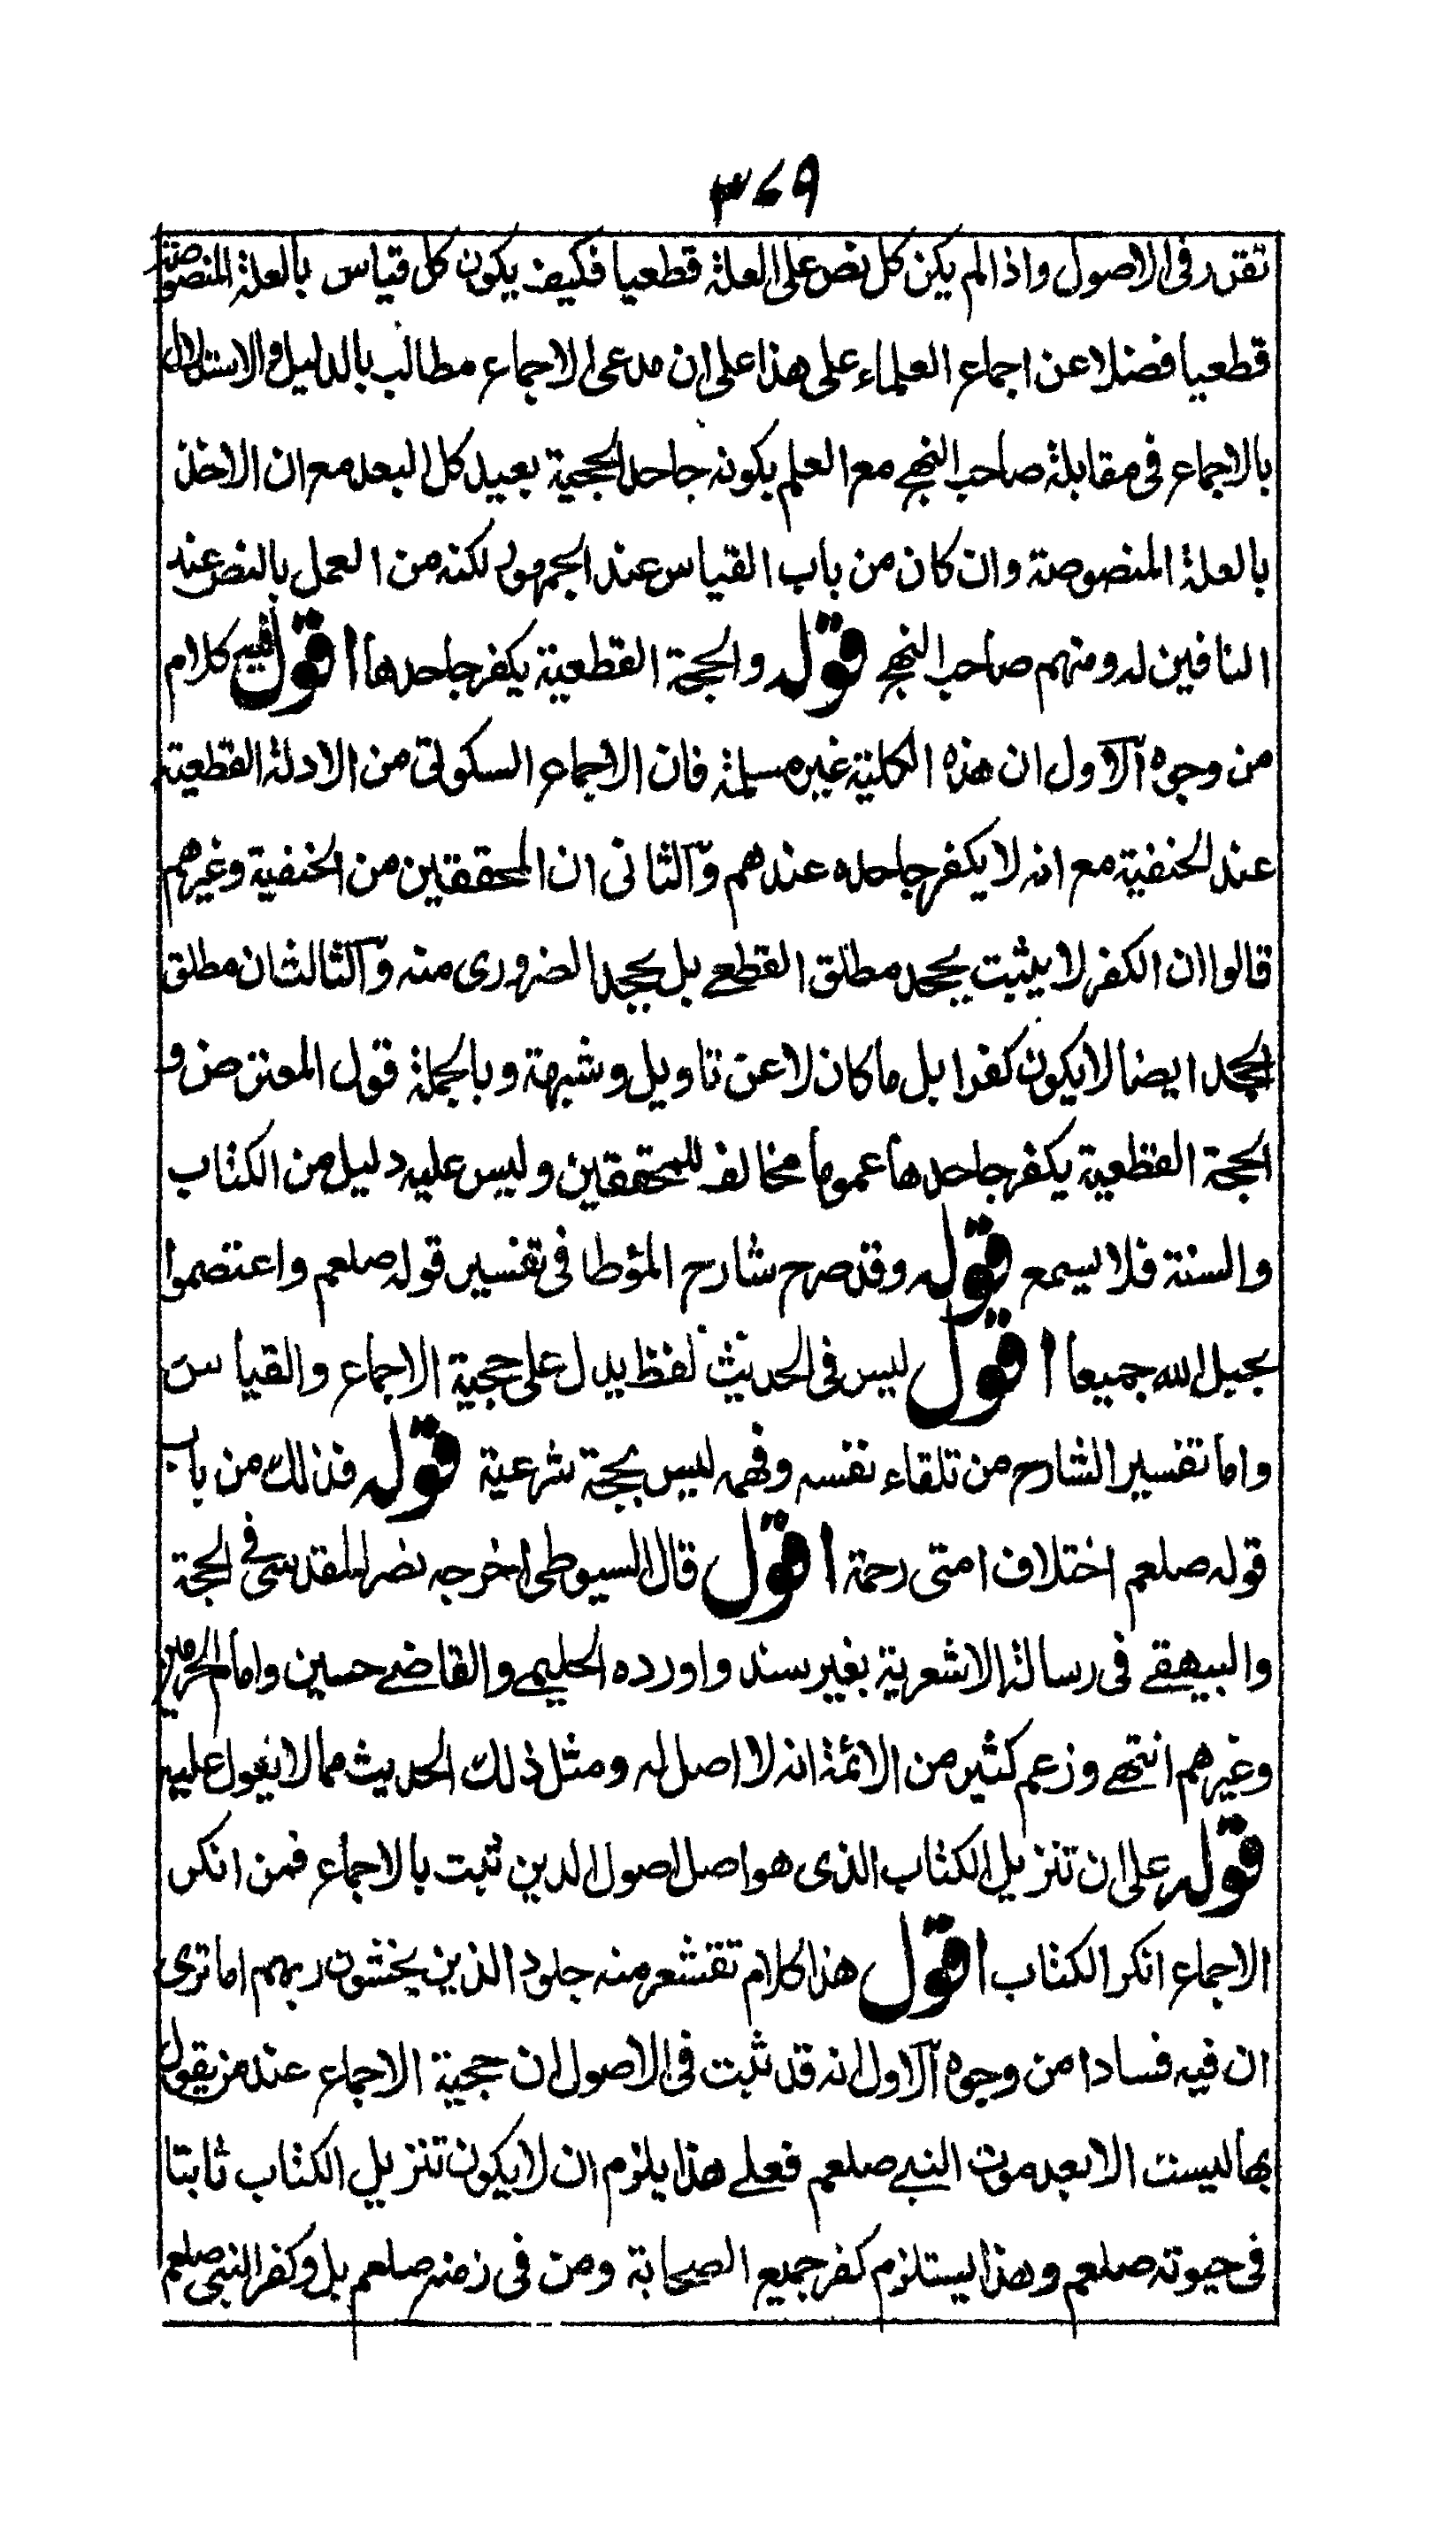 ٣٤٩
تقرر فى الاصول واذا لم يكن كل نص على العلة قطعيا فكيف يكون كل قياس بالعلة المنصوصة
قطعيا فضلا عن اجماع العلماء على هذا على ان مدعى الاجماع مطالب بالدليل والاستدلال
بالاجماع فى مقابلة صاحب النهج مع العلم بكونه جاحدا لحجية بعيد كل البعد مع ان الاخذ
بالعلة المنصوصة وان كان من باب القياس عند الجمهور لكنه من العمل بالنص عند
النافين له ومنهم صاحب النهج قوله والحجة القطعية يكفر جاحدها اقول فيه كلام
من وجوه الاول ان هذه الكلية غير مسلمة فان الاجماع السكوتى من الادلة القطعية
عند الحنفية مع انه لا يكفر جاحده عندهم والثانى ان المحققين من الحنفية وغيرهم
قالوا ان الكفر لا يثبت بجحد مطلق القطعى بل بجحد الضرورى منه والثالث ان مطلق
الجحد ايضا لا يكون كفرا بل ما كان لا عن تاويل وشبهة وبالجملة قول المعترض و
الحجة القطعية يكفر جاحدها عموما مخالف للمحققين وليس عليه دليل من الكتاب
والسنة فلا يسمع قوله وقد صرح شارح المؤطا فى تفسير قوله صلعم واعتصموا
بحبل الله جميعا اقول ليس فى الحديث لفظ يدل على حجية الاجماع والقياس
واما تفسير الشارح من تلقاء نفسه وفهمه ليس بحجة شرعية قوله فذلك من باب
قوله صلعم اختلاف امتى رحمة اقول قال السيوطى اخرجه نصر المقدسى فى الحجة
والبيهقے فى رسالة الاشعرية بغير سند واورده الحليمى والقاضے حسين وامام الحرمين
وغيرهم انتهے وزعم كثير من الائمة انه لا اصل له ومثل ذلك الحديث مما لا يعول عليه
قوله على ان تنزيل الكتاب الذى هو اصل اصول الدين ثبت بالاجماع فمن انكر
الاجماع انكر الكتاب اقول هذا كلام تقشعر منه جلود الذين يخشون ربهم اما ترى
ان فيه فسادا من وجوه الاول انه قد ثبت فى الاصول ان حجية الاجماع عند من يقول
بها ليست الا بعد موت النبے صلعم فعلے هذا يلزم ان لا يكون تنزيل الكتاب ثابتا
فى حيوته صلعم وهذا يستلزم كفر جميع الصحابة ومن فى زمنه صلعم بل وكفر النبى صلعم